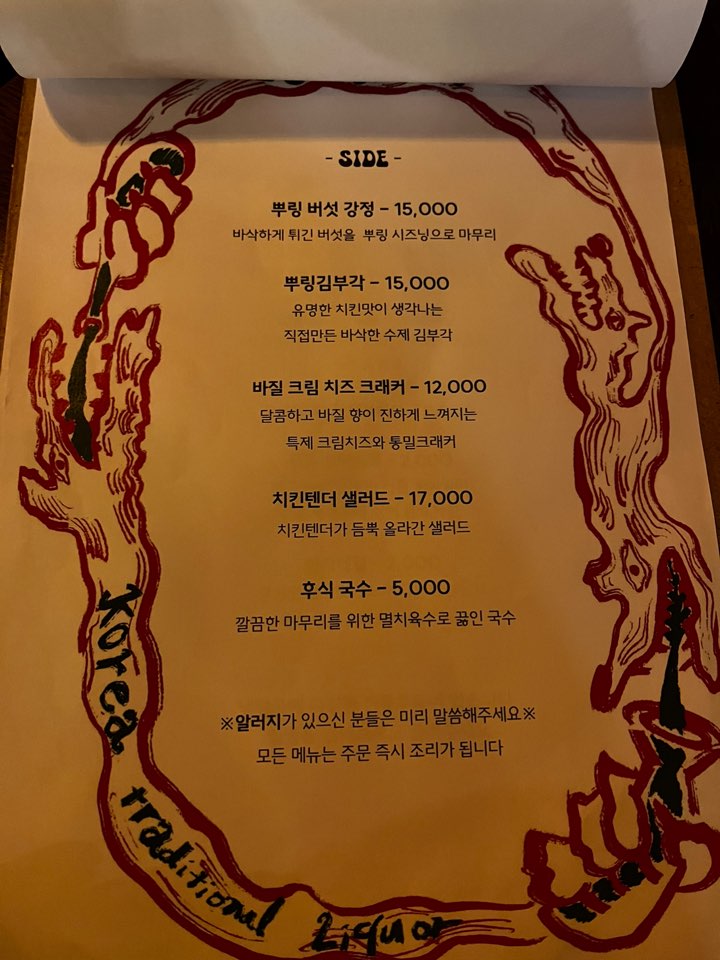 - SIDE -
뿌링 버섯 강정 - 15,000
바삭하게 튀긴 버섯을 뿌링 시즈닝으로 마무리
뿌링김부각 - 15,000
유명한 치킨맛이 생각나는
직접만든 바삭한 수제 김부각
바질 크림 치즈 크래커 - 12,000
달콤하고 바질 향이 진하게 느껴지는
특제 크림치즈와 통밀크래커
치킨텐더 샐러드 - 17,000
치킨텐더가 듬뿍 올라간 샐러드
후식 국수 - 5,000
깔끔한 마무리를 위한 멸치육수로 끓인 국수
※알러지가 있으신 분들은 미리 말씀해주세요※
모든 메뉴는 주문 즉시 조리가 됩니다
Korea traditional Liquor